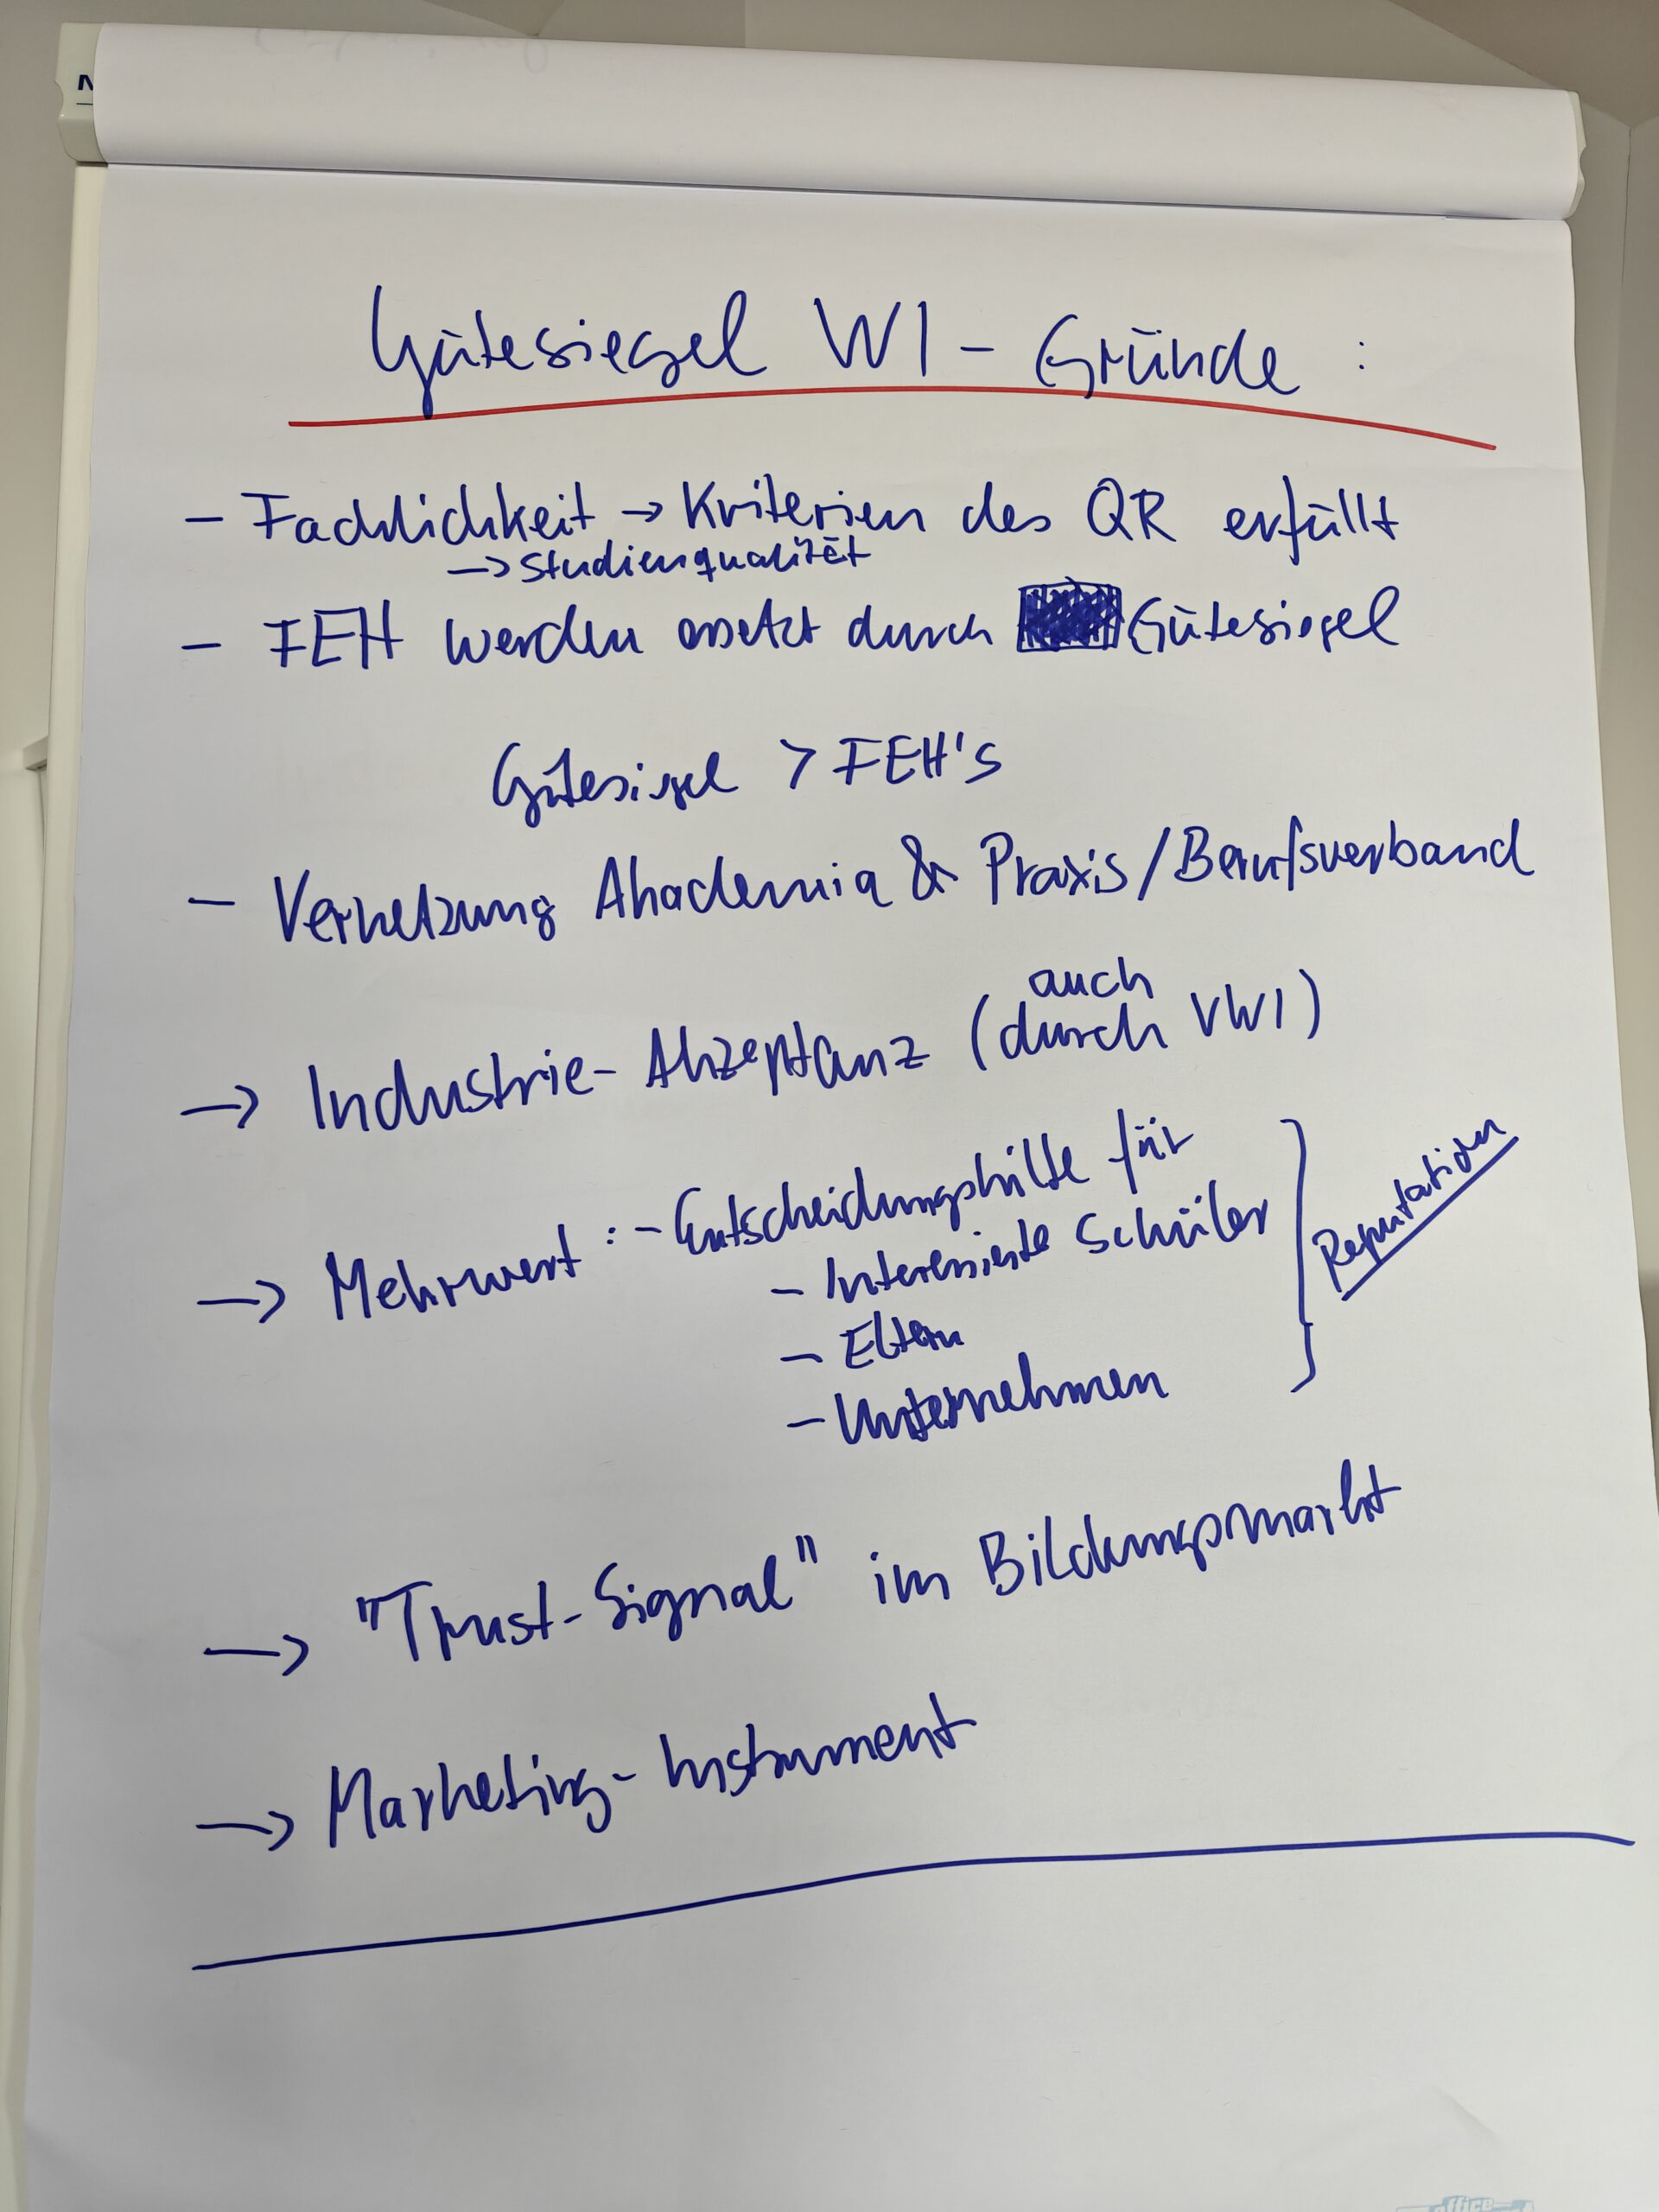 Gütesiegel WI - Gründe :
- Fachlichkeit → Kriterien des QR erfüllt
→ Studienqualität
- FEH werden ersetzt durch Gütesiegel
Gütesiegel > FEH's
- Vernetzung Akademia & Praxis/Berufsverband
auch
→ Industrie-Akzeptanz (durch VWI)
→ Mehrwert : - Entscheidungshilfe für
- Interessierte Schüler
- Eltern
- Unternehmen
Reputation
→ "Trust-Signal" im Bildungsmarkt
→ Marketing-Instrument
office